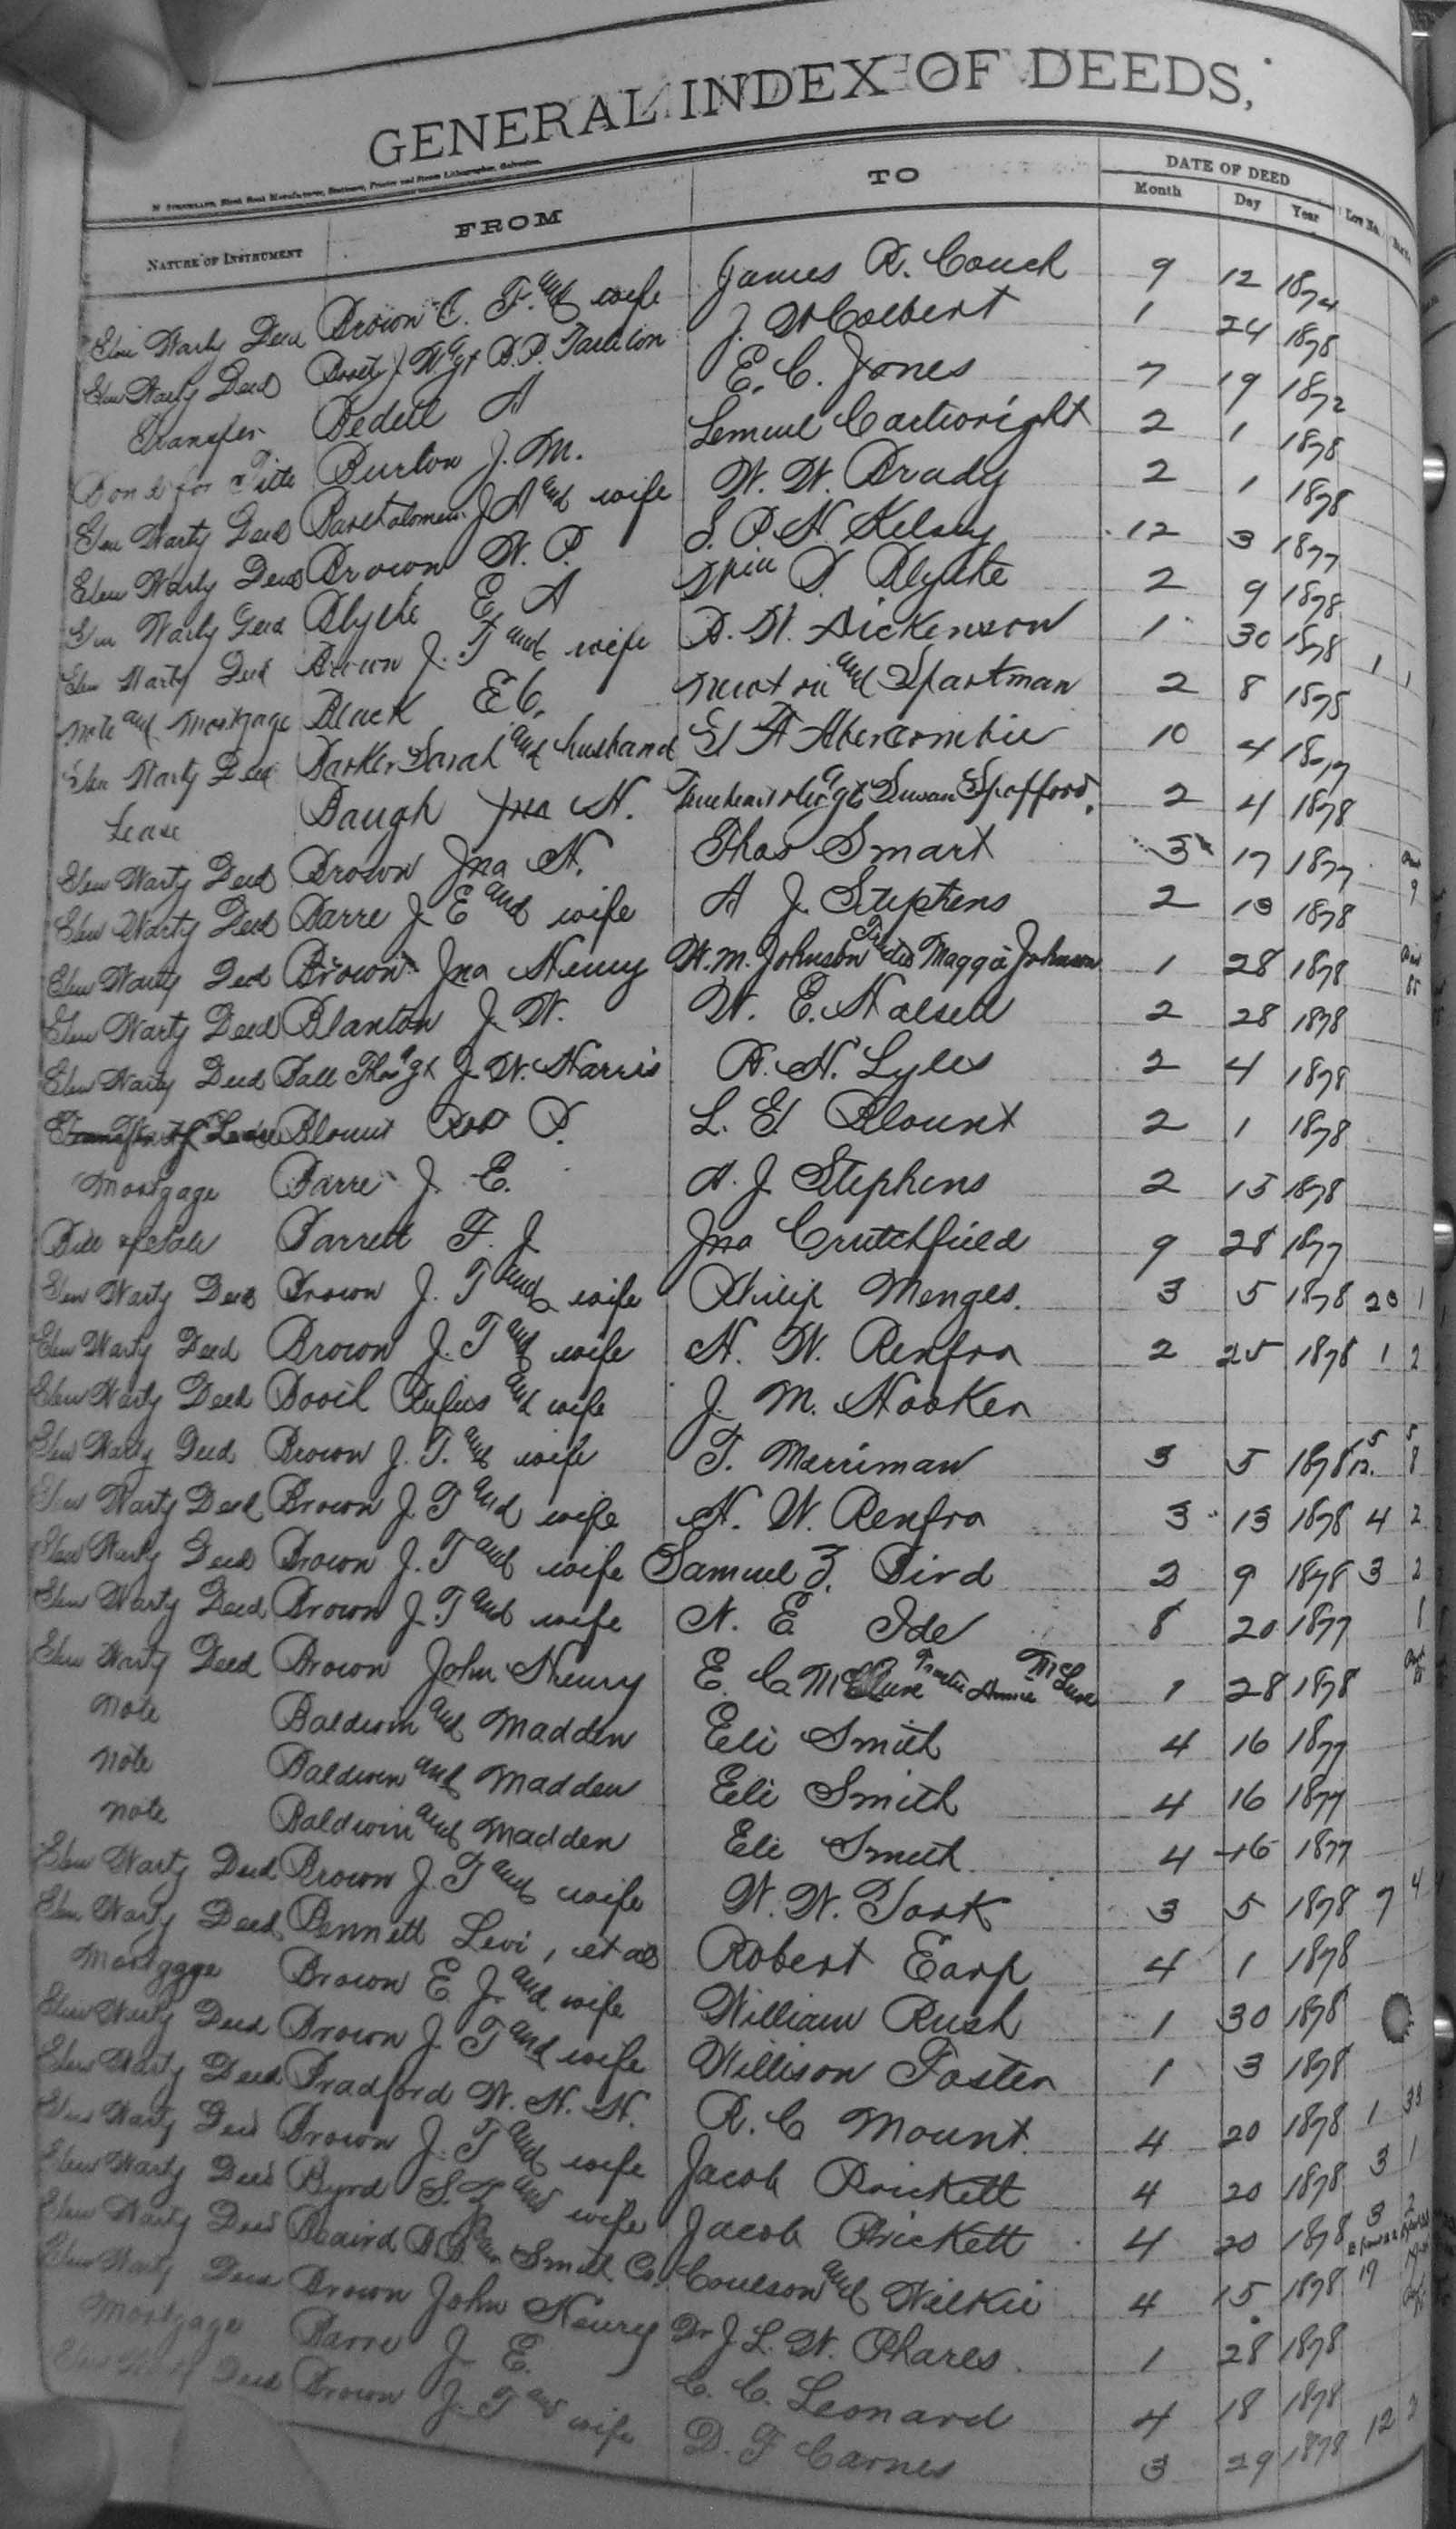 GENERAL INDEX OF DEEDS,
NATURE OF INSTRUMENT FROM TO DATE OF DEED Month Day Year Lot No.
Warty Deed Brown C. F. and wife James R. Couch 9 12 1874
Warty Deed J. W. agt B. P. J. W Colbert 1 24 1878
Transfer Bedell A E. C. Jones 7 19 1872
Bond for Title Burton J. M. Lemuel Cartwright 2 1 1878
Warty Deed Bartholomew J A and wife W. W. Brady 2 1 1878
Warty Deed Brown W. P. S. P. H. Kelsey 12 3 1877
Warty Deed Blythe E. A D. Blythe 2 9 1878
Warty Deed Brown J. T and wife D. W. Dickenson 1 30 1878 1 1
Note and Mortgage Black E C. and Spartman 2 8 1878
Warty Deed Barker Sarah and husband A Abercrombie 10 4 1877
Lease Baugh Jna H. agts Susan Spofford 2 4 1878
Warty Deed Brown Jna H. Thos Smart 3 17 1877
Warty Deed Barre J. E and wife A J. Stephens 2 1878
Warty Deed Brown Jna Henry W. M. Johnson Trustee Maggie Johnson 1 28 1878
Warty Deed Blanton J. W. W. E. Halsell 2 28 1878
Warty Deed Ball Thos agt J. W. Harris R. H. Lyles 2 4 1878
Blount P. L. G Blount 2 1 1878
Mortgage Barre J. E. A. J. Stephens 2 15 1878
Bill of Sale Barrett F. J. Jno Crutchfield 9 28 1877
Warty Deed Brown J. T and wife Philip Menges. 3 5 1878 20 1
Warty Deed Brown J. T and wife H. W. Renfro 2 25 1878 1 2
Warty Deed Rufus and wife J. M. Hooker
Warty Deed Brown J. T. and wife T. Merriman 3 5 1878 5 12. 5 8
Warty Deed Brown J. T and wife H. W. Renfro 3 13 1878 4 2
Warty Deed Brown J. T and wife Samuel Z. Bird 2 9 1878 3 2
Warty Deed Brown J. T and wife N. E. Ide 8 20 1877 1
Warty Deed Brown John Henry E. C. McClure Trustee Annie McClure 1 28 1878
Note Baldwin and Madden Eli Smith 4 16 1877
Note Baldwin and Madden Eli Smith 4 16 1877
Note Baldwin and Madden Eli Smith 4 16 1877
Warty Deed Brown J. T and wife W. W. York 3 5 1878 7 4
Warty Deed Bennett Levi, et als Robert Earp 4 1 1878
Mortgage Brown E. J. and wife William Rush 1 30 1878
Warty Deed Brown J. T and wife Willison Foster 1 3 1878
Warty Deed Bradford W. H. H. R. C Mount. 4 20 1878 1 33
Warty Deed Brown J. T and wife Jacob Prickett 4 20 1878 3 1
Warty Deed Byrd S. Z and wife Jacob Prickett 4 20 1878 3 2
Warty Deed Beaird B. B. Smith Co. Coulson and Wilkie 4 15 1878 19
Warty Deed Brown John Henry Dr J. L. W. Phares 1 28 1878
Mortgage Barre J. E. C. C. Leonard 4 18 1878
Deed Brown J. T and wife D. F Carnes 3 29 1878 12 2